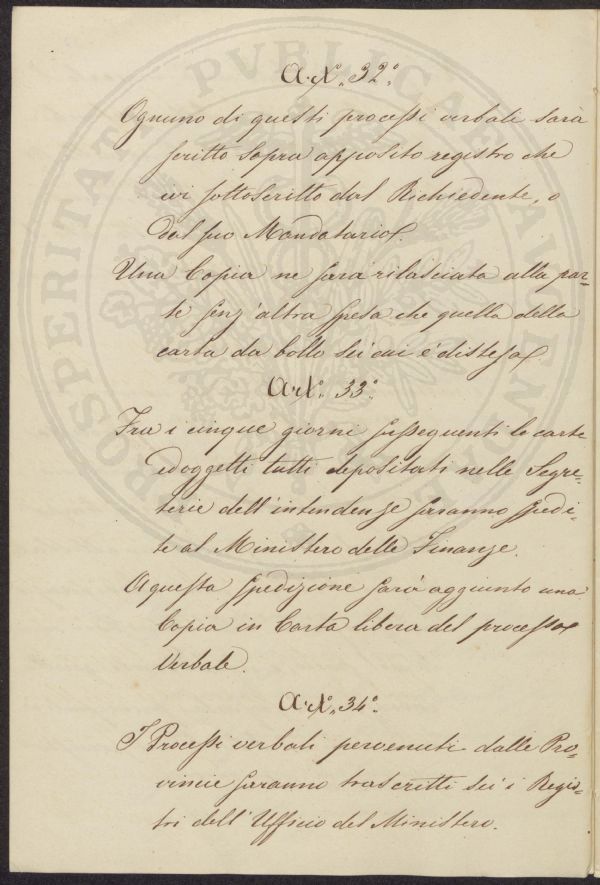 Art.° 32.°
Ognuno di questi processi verbali sarà
scritto sopra apposito registro che
ivi sottoscritto dal Richiedente, o
dal suo Mandatario.
Una Copia ne sarà rilasciata alla par-
te senz'altra spesa che quella della
carta da bollo su cui è distesa.
Art.° 33.°
Fra i cinque giorni susseguenti le carte
ed oggetti tutti depositati nelle Segre-
terie dell'intendenze saranno spedi-
te al Ministero delle Finanze.
A questa spedizione sarà aggiunto una
Copia in Carta libera del processo
Verbale.
Art.° 34.°
I Processi verbali pervenuti dalle Pro-
vincie saranno trascritti su i Regis-
tri dell'Ufficio del Ministero.
PROSPERITATI PVBLICAE AVGENDAE